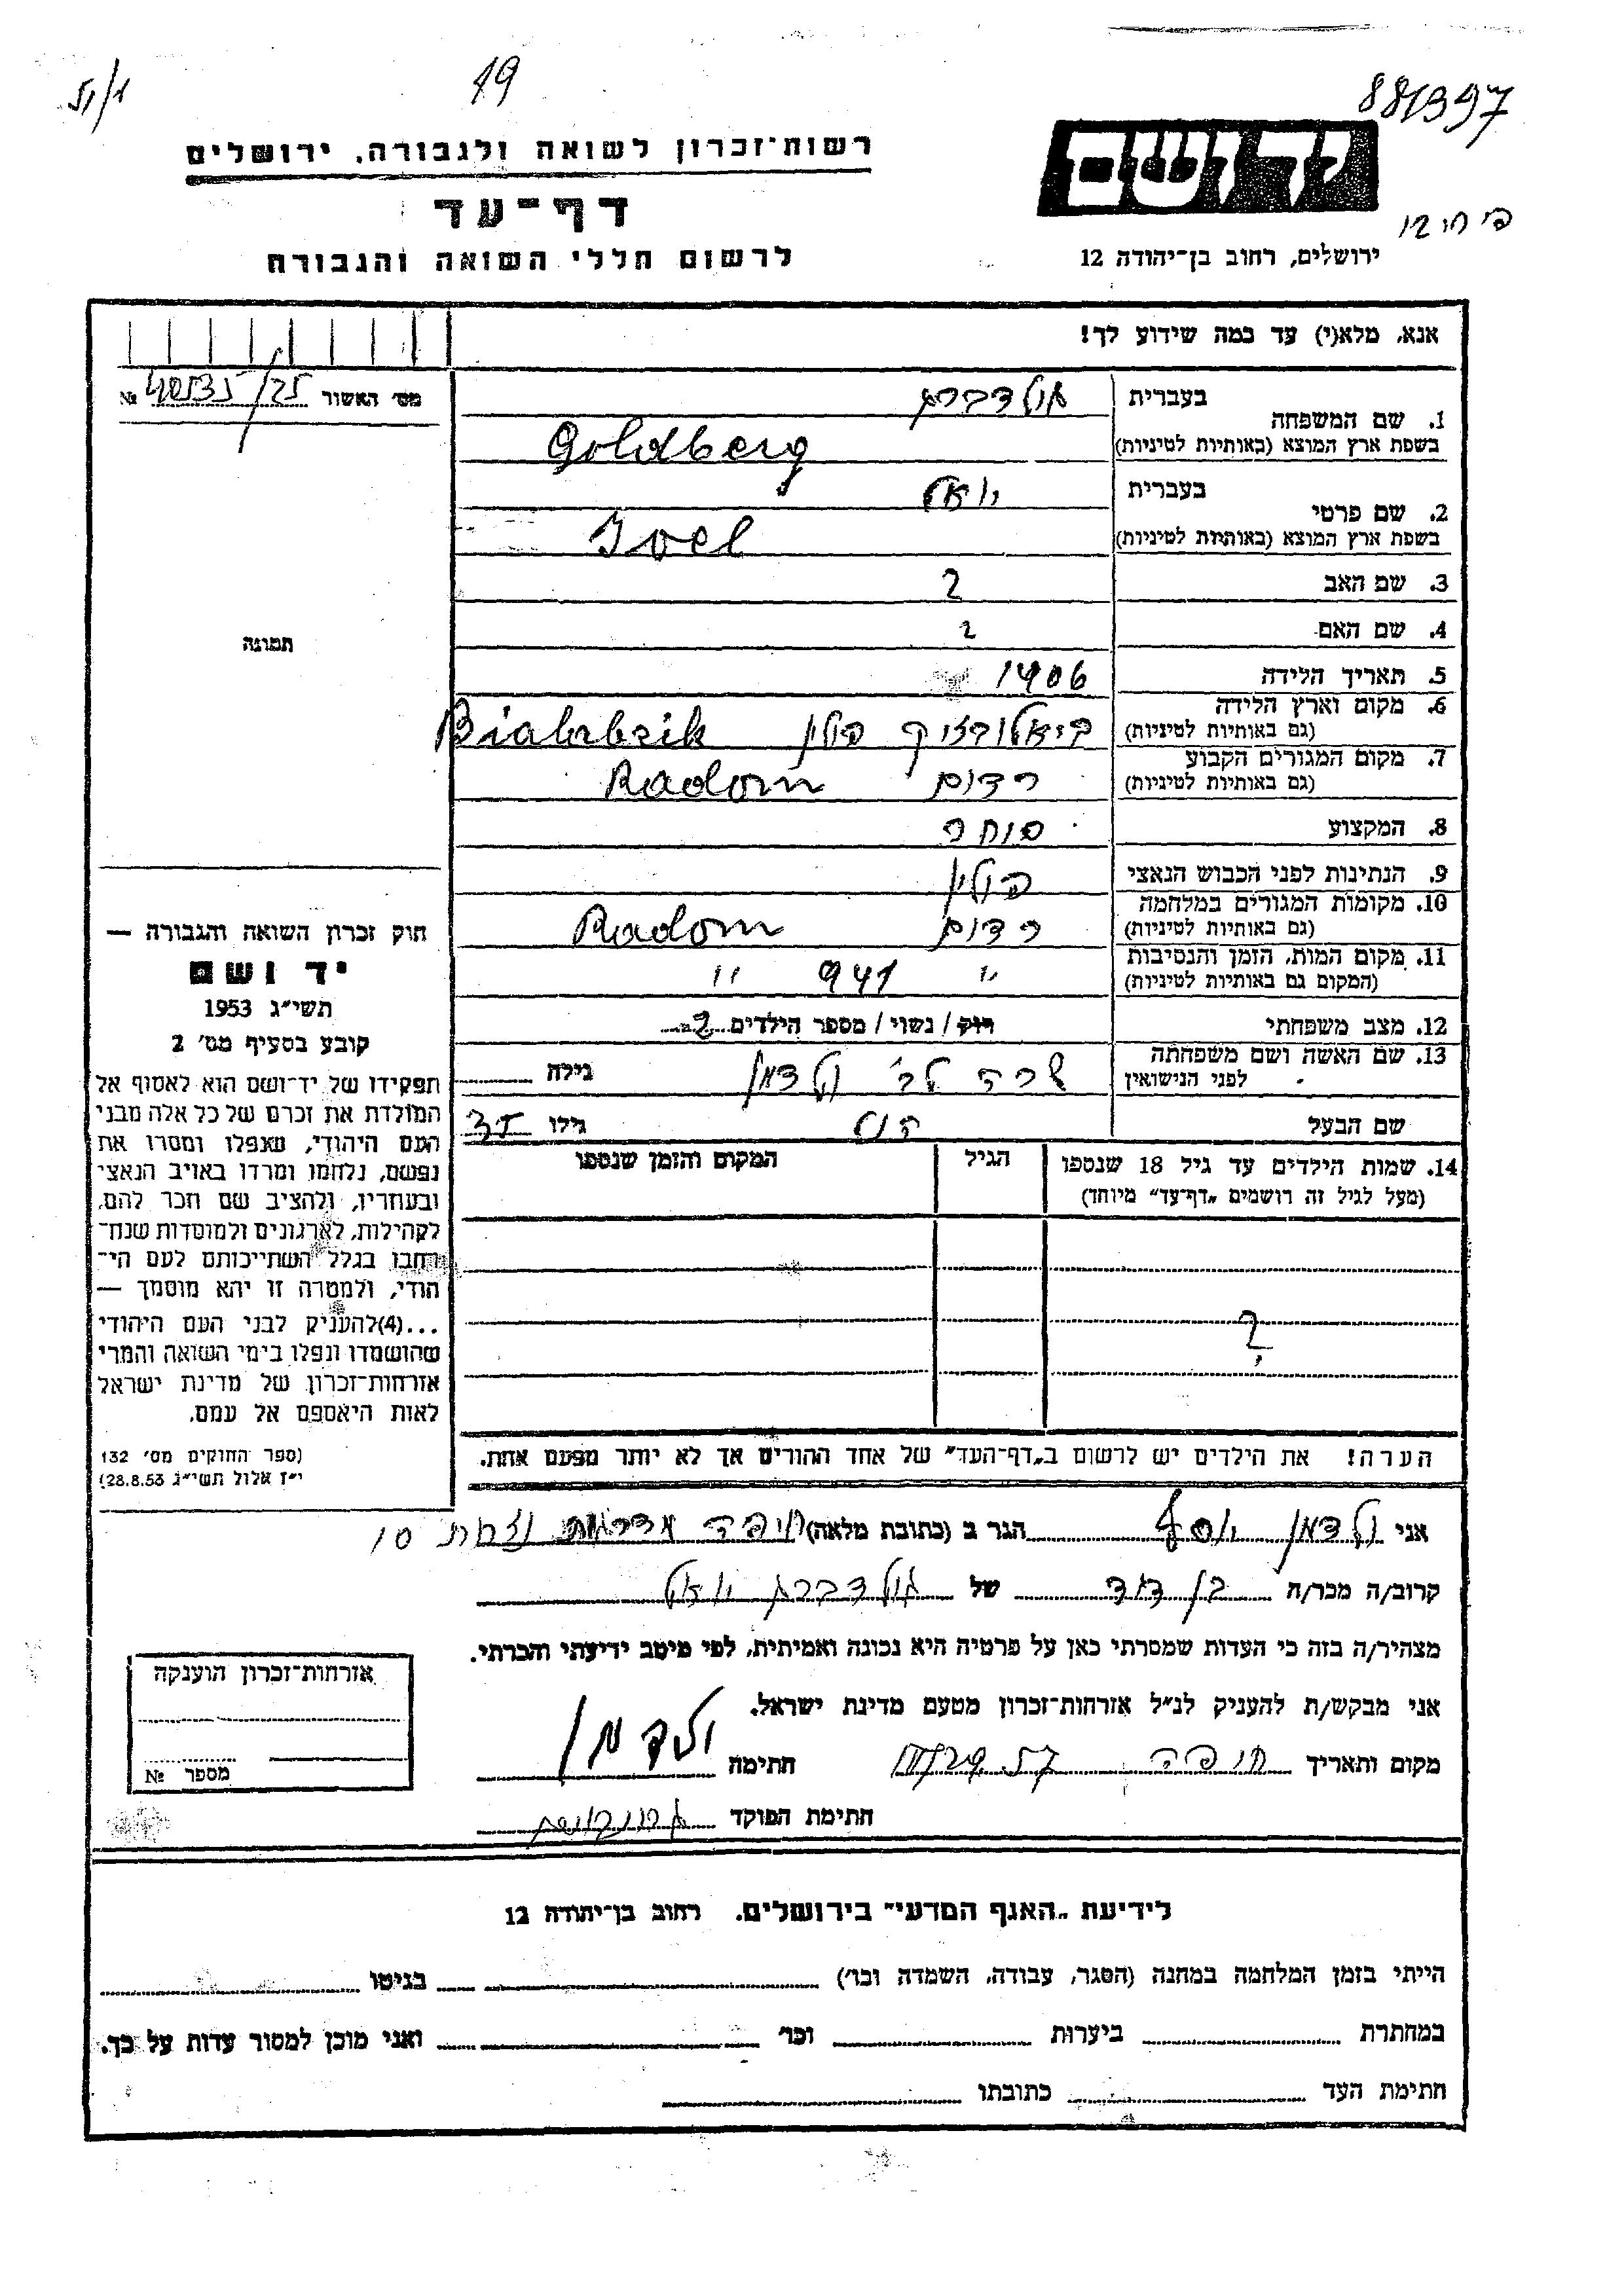 19
881397
רשות־זכרון לשואה ולגבורה, ירושלים
יד ושם
דף־עד
לרשום חללי השואה והגבורה
ירושלים, רחוב בן־יהודה 12
אנא, מלא(י) עד כמה שידוע לך!
מס׳ האשור 40535/25 №
1. שם המשפחה
בעברית גולדברג
בשפת ארץ המוצא (באותיות לטיניות) Goldberg
2. שם פרטי
בעברית יואל
בשפת ארץ המוצא (באותיות לטיניות) Joel
3. שם האב ?
4. שם האם ?
5. תאריך הלידה 1906
6. מקום וארץ הלידה
(גם באותיות לטיניות) ביאלובז'יק פולין Bialabzik
7. מקום המגורים הקבוע
(גם באותיות לטיניות) רדום Radom
8. המקצוע סוחר
9. הנתינות לפני הכבוש הנאצי פולין
10. מקומות המגורים במלחמה
(גם באותיות לטיניות) רדום Radom
11. מקום המות, הזמן והנסיבות
(המקום גם באותיות לטיניות) " 941 "
12. מצב משפחתי רוק / נשוי / מספר הילדים 2
13. שם האשה ושם משפחתה
לפני הנישואין שרה לב' ולדמן גילה
שם הבעל גילו 35
14. שמות הילדים עד גיל 18 שנספו
(מעל לגיל זה רושמים „דף־עד" מיוחד)
הגיל
המקום והזמן שנספו
?
הערה! את הילדים יש לרשום ב„דף־העד" של אחד ההורים אך לא יותר מפעם אחת.
תמונה
חוק זכרון השואה והגבורה —
יד ושם
תשי״ג 1953
קובע בסעיף מס׳ 2
תפקידו של יד־ושם הוא לאסוף אל
המולדת את זכרם של כל אלה מבני
העם היהודי, שנפלו ומסרו את
נפשם, נלחמו ומרדו באויב הנאצי
ובעוזריו, ולהציב שם וזכר להם,
לקהילות, לארגונים ולמוסדות שנח־
רבו בגלל השתייכותם לעם הי־
הודי, ולמטרה זו יהא מוסמך —
...(4)להעניק לבני העם היהודי
שהושמדו ונפלו בימי השואה והמרי
אזרחות־זכרון של מדינת ישראל
לאות היאספם אל עמם.
(ספר החוקים מס׳ 132
י״ז אלול תשי״ג 28.8.53)
אני ולדמן יוסף הגר ב (כתובת מלאה) חיפה 10
קרוב/ה מכר/ה בן דוד של גולדברג יואל
מצהיר/ה בזה כי העדות שמסרתי כאן על פרטיה היא נכונה ואמיתית, לפי מיטב ידיעתי והכרתי.
אני מבקש/ת להעניק לנ״ל אזרחות־זכרון מטעם מדינת ישראל.
מקום ותאריך חיפה חתימה ולדמן
חתימת הפוקד
אזרחות־זכרון הוענקה
מספר №
לידיעת „האגף המדעי" בירושלים, רחוב בן־יהודה 12
הייתי בזמן המלחמה במחנה (הסגר, עבודה, השמדה וכו׳) בגיטו
במחתרת ביערות וכו׳ ואני מוכן למסור עדות על כך.
חתימת העד כתובתו